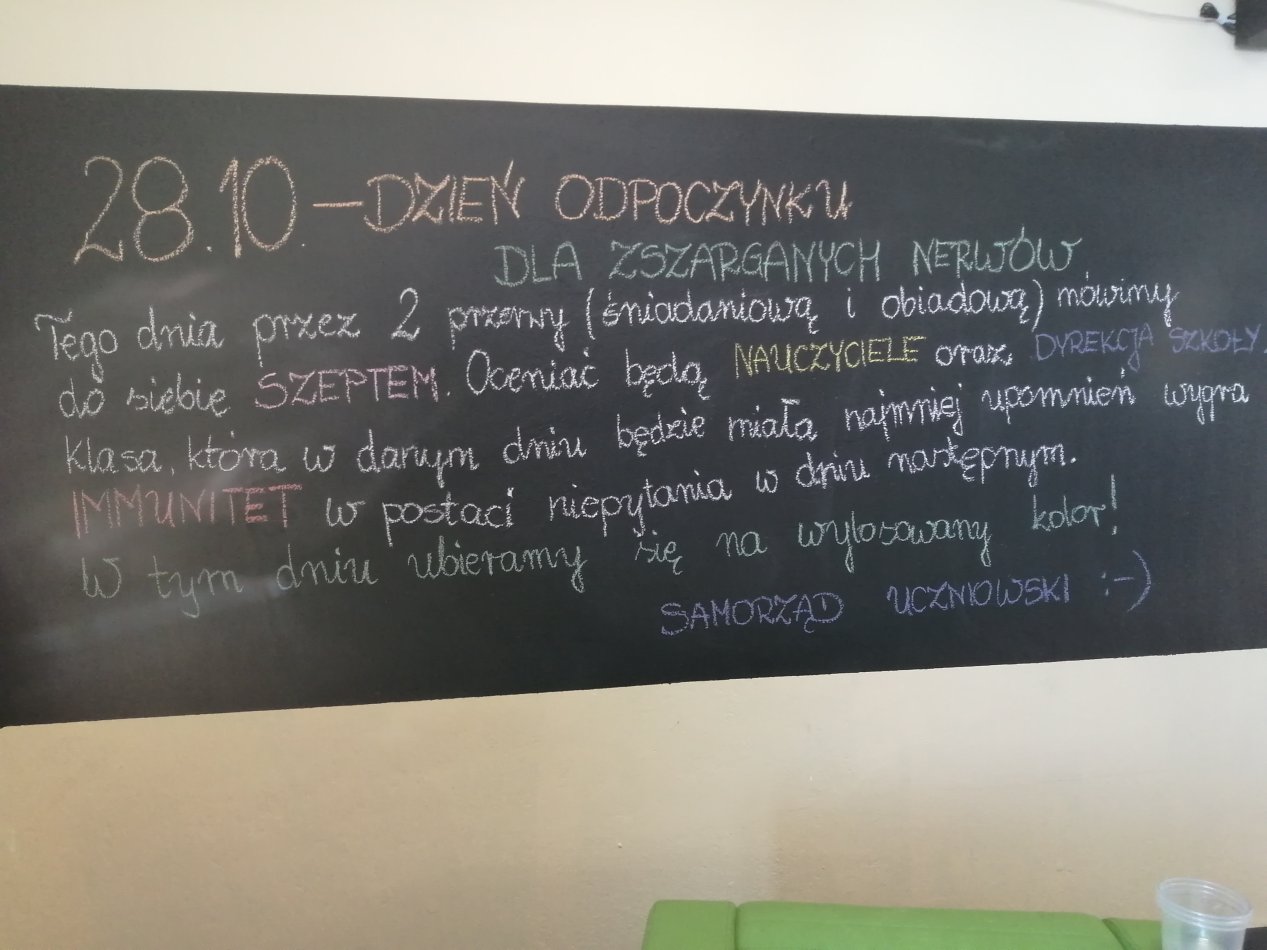 28.10. – DZIEŃ ODPOCZYNKU
DLA ZSZARGANYCH NERWÓW
Tego dnia przez 2 przerwy (śniadaniową i obiadową) mówimy
do siebię SZEPTEM. Oceniać będą NAUCZYCIELE oraz DYREKCJA SZKOŁY.
Klasa, która w danym dniu będzie miała najmniej upomnień wygra
IMMUNITET w postaci niepytania w dniu następnym.
W tym dniu ubieramy się na wylosowany kolor!
SAMORZĄD UCZNIOWSKI :-)